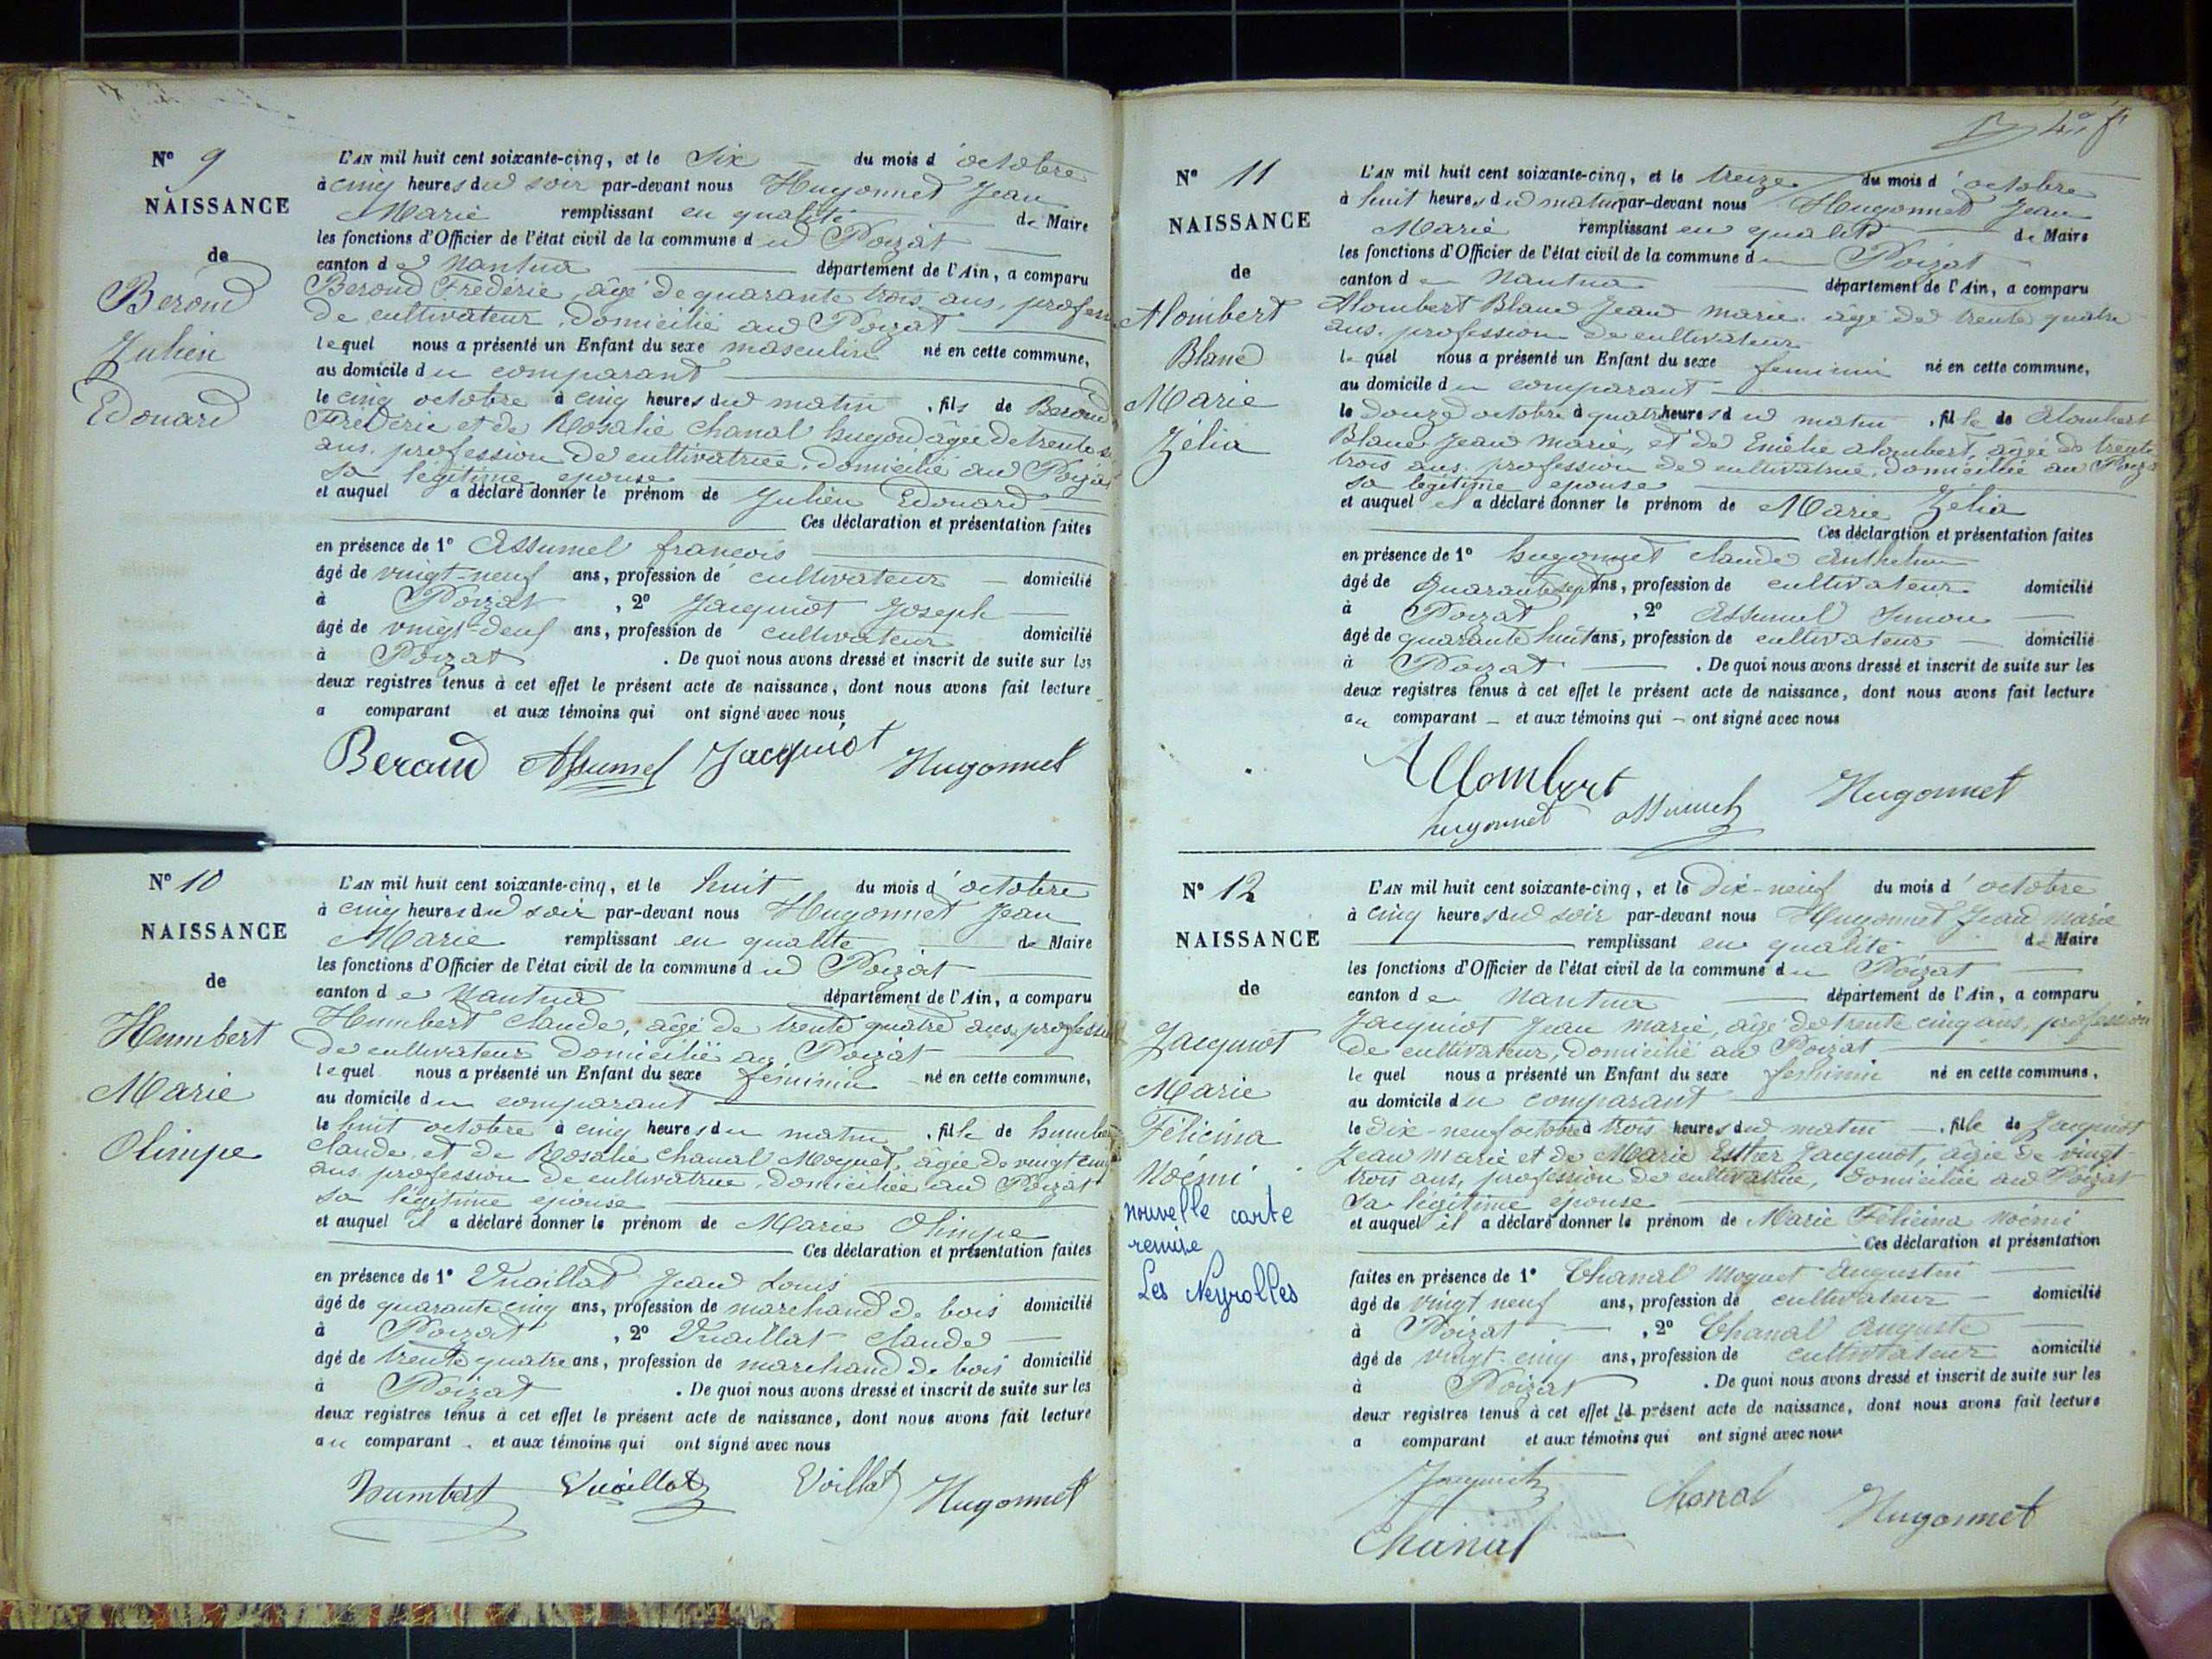 N° 9
NAISSANCE
de
Beroud
Julien
Edouard
L'AN mil huit cent soixante-cinq, et le Six du mois d'octobre
à cinq heures du soir par-devant nous Hugonnet Jean
Marie remplissant en qualité de Maire
les fonctions d'Officier de l'état civil de la commune du Poizat
canton de Nantua département de l'Ain, a comparu
Beroud Frédéric, âgé de quarante trois ans, profession
de cultivateur, domicilié au Poizat
lequel nous a présenté un Enfant du sexe masculin né en cette commune,
au domicile du comparant
le cinq octobre à cinq heures du matin, fils de Beroud
Frédéric et de Rosalie Chanal hugon âgée de trente
ans, profession de cultivatrice, domicilié au Poizat
sa légitime epouse
et auquel a déclaré donner le prénom de Julien Edouard
Ces déclaration et présentation faites
en présence de 1° Assumel françois
âgé de vingt-neuf ans, profession de cultivateur domicilié
à Poizat, 2° Jacquiot Joseph
âgé de vingt-deuf ans, profession de cultivateur domicilié
à Poizat. De quoi nous avons dressé et inscrit de suite sur les
deux registres tenus à cet effet le présent acte de naissance, dont nous avons fait lecture
a comparant et aux témoins qui ont signé avec nous
Beraud Assumel Jacquiot Hugonnet
N° 10
NAISSANCE
de
Humbert
Marie
Olimpe
L'AN mil huit cent soixante-cinq, et le huit du mois d'octobre
à cinq heures du soir par-devant nous Hugonnet Jean
Marie remplissant en qualité de Maire
les fonctions d'Officier de l'état civil de la commune du Poizat
canton de Nantua département de l'Ain, a comparu
Humbert Claude, âgé de trente quatre ans, profession
de cultivateur domicilié au Poizat
lequel nous a présenté un Enfant du sexe féminin né en cette commune,
au domicile du comparant
le huit octobre à cinq heures du matin, fille de humbert
Claude, et de Rosalie Chanal Moguet, âgée de vingt cinq
ans, profession de cultivatrice, domiciliée au Poizat
sa légitime epouse
et auquel il a déclaré donner le prénom de Marie Olimpe
Ces déclaration et présentation faites
en présence de 1° Vuaillat Jean Louis
âgé de quarante cinq ans, profession de marchand de bois domicilié
à Poizat, 2° Vuaillat Claude
âgé de trente quatre ans, profession de marchand de bois domicilié
à Poizat. De quoi nous avons dressé et inscrit de suite sur les
deux registres tenus à cet effet le présent acte de naissance, dont nous avons fait lecture
au comparant et aux témoins qui ont signé avec nous
humbert Vuaillat Voillat Hugonnet
N° 11
NAISSANCE
de
Alombert
Blanc
Marie
Zélia
L'AN mil huit cent soixante-cinq, et le treize du mois d'octobre
à huit heures du matin par-devant nous Hugonnet Jean
Marie remplissant en qualité de Maire
les fonctions d'Officier de l'état civil de la commune d Poizat
canton de Nantua département de l'Ain, a comparu
Alombert Blanc Jean marie, âgé de trente quatre
ans, profession de cultivateur
lequel nous a présenté un Enfant du sexe feminin né en cette commune,
au domicile du comparant
le douze octobre à quatre heures du matin, fille de Alombert
Blanc Jean Marie, et de Emélie alombert, âgée de trente
trois ans, profession de cultivatrice, domiciliée au Poizat
sa légitime epouse
et auquel el a déclaré donner le prénom de Marie Zélia
Ces déclaration et présentation faites
en présence de 1° hugonnet claude
âgé de Quarante sept ans, profession de cultivateur domicilié
à Poizat, 2° Assumel Simon
âgé de quarante huit ans, profession de cultivateur domicilié
à Poizat. De quoi nous avons dressé et inscrit de suite sur les
deux registres tenus à cet effet le présent acte de naissance, dont nous avons fait lecture
au comparant et aux témoins qui ont signé avec nous
Allombert
hugonnet Assumel Hugonnet
N° 12
NAISSANCE
de
Jacquiot
Marie
Félicina
Noémi
nouvelle carte
remise
Les Neyrolles
L'AN mil huit cent soixante-cinq, et le Dix-neuf du mois d'octobre
à cinq heures du soir par-devant nous Hugonnet Jean Marie
remplissant en qualité de Maire
les fonctions d'Officier de l'état civil de la commune du Poizat
canton de Nantua département de l'Ain, a comparu
Jacquiot Jean Marie, âgé de trente cinq ans, profession
de cultivateur, domicilié au Poizat
lequel nous a présenté un Enfant du sexe feminin né en cette commune,
au domicile du comparant
le dix-neuf octobre à trois heures du matin, fille de Jacquiot
Jean Marie et de Marie Esther Jacquiot, âgée de vingt-
trois ans, profession de cultivatrice, domiciliée au Poizat
Sa légitime epouse
et auquel il a déclaré donner le prénom de Marie Félicina Noémi
Ces déclaration et présentation
faites en présence de 1° Chanal Moguet Augustin
âgé de vingt neuf ans, profession de cultivateur domicilié
à Poizat, 2° Chanal Auguste
âgé de vingt-cinq ans, profession de cultivateur domicilié
à Poizat. De quoi nous avons dressé et inscrit de suite sur les
deux registres tenus à cet effet le présent acte de naissance, dont nous avons fait lecture
a comparant et aux témoins qui ont signé avec nous
Jacquiot Chanal Hugonnet
Chanal